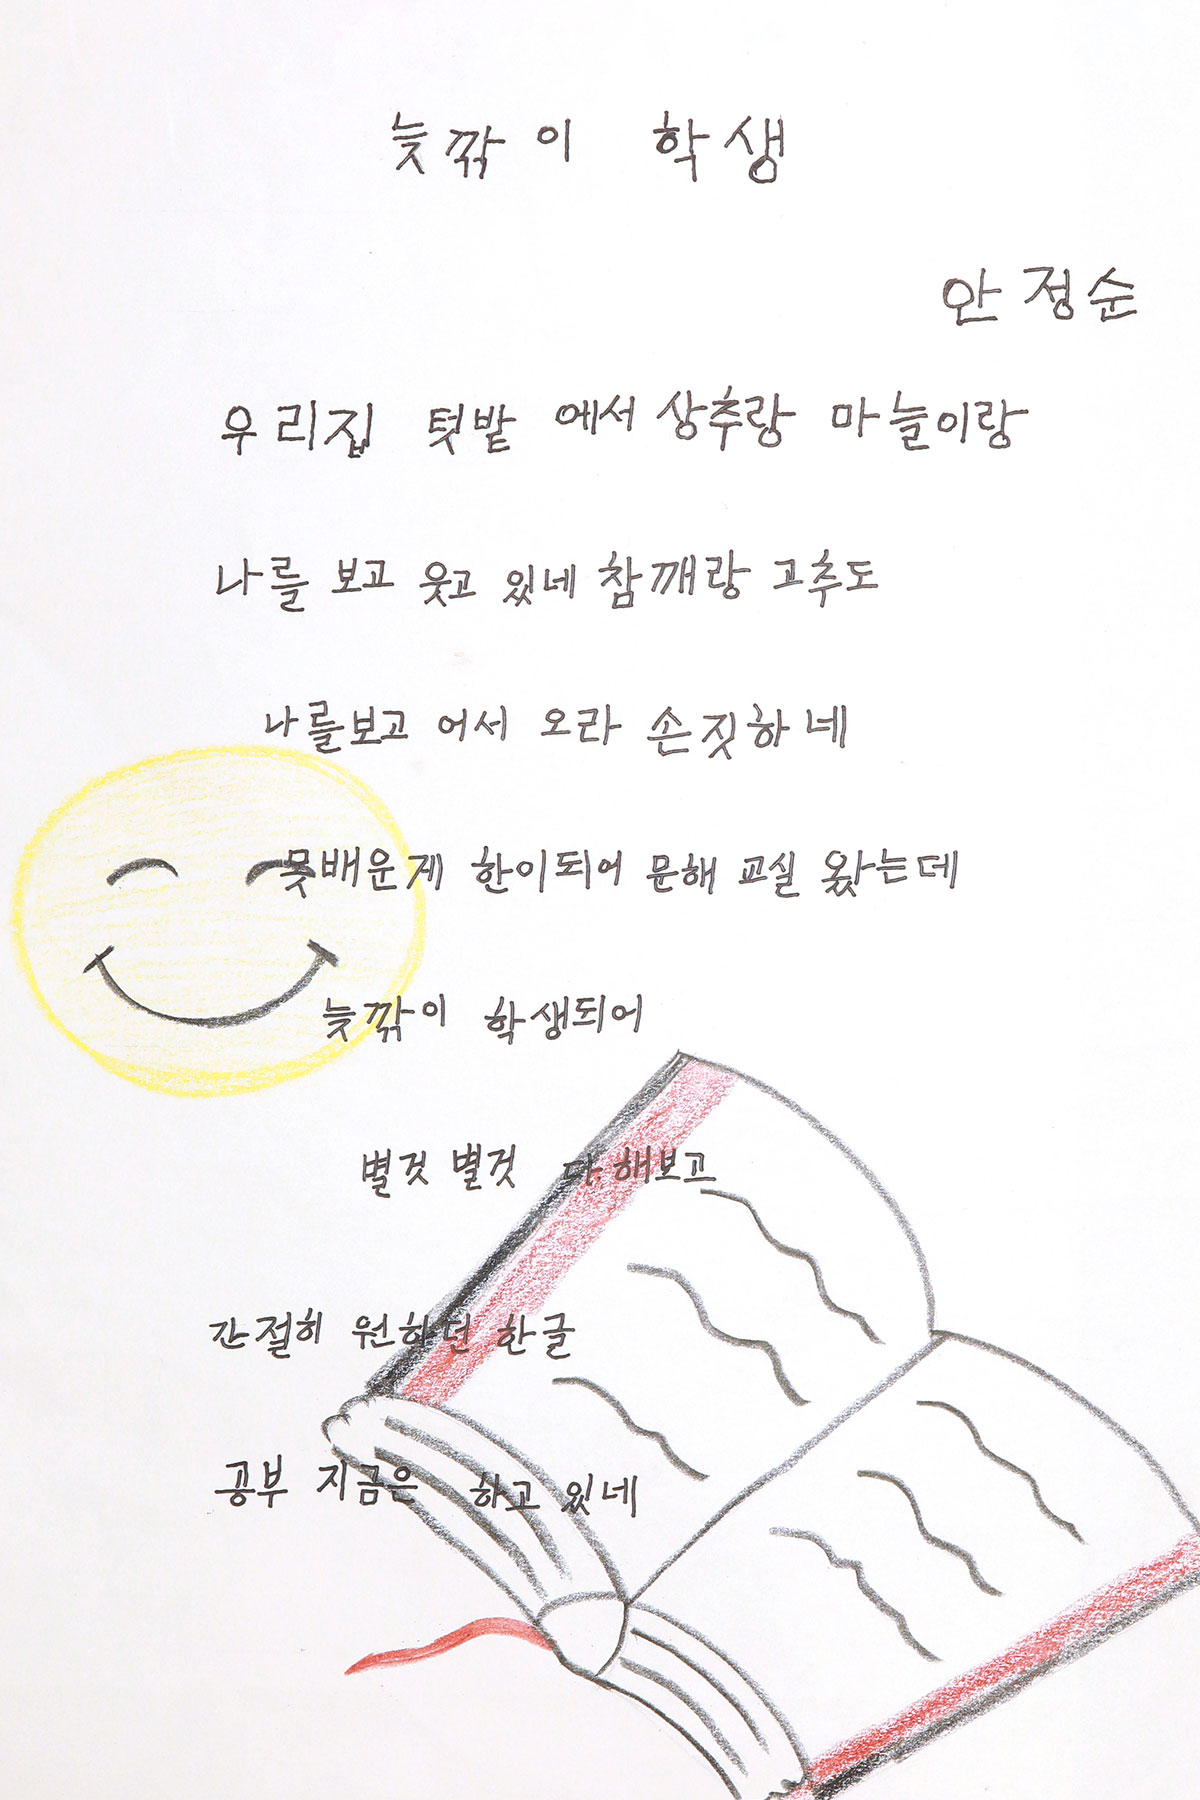 늦깎이 학생
안정순
우리집 텃밭 에서 상추랑 마늘이랑
나를 보고 웃고 있네 참깨랑 고추도
나를보고 어서 오라 손짓하네
못배운게 한이되어 문해 교실 왔는데
늦깎이 학생되어
별것 별것 다.해보고
간절히 원하던 한글
공부 지금은 하고 있네